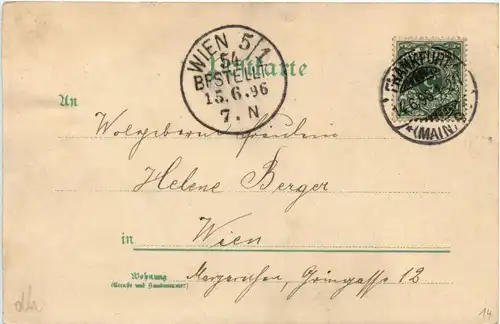 WIEN 5/1
54
BESTELLT
15.6.96
7. N
Postkarte
FRANKFURT
(MAIN)
An
Wolgeborne Fräulein
Helene Berger
in Wien
Wohnung
(Straße und Hausnummer)
Margarethen, Grüngasse 12
14